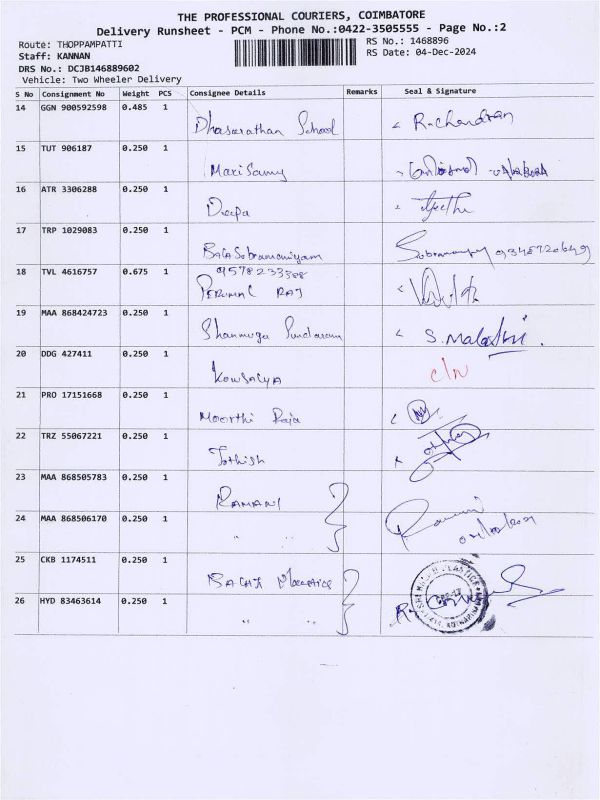 THE PROFESSIONAL COURIERS, COIMBATORE
Delivery Runsheet - PCM - Phone No.:0422-3505555 - Page No.:2
Route: THOPPAMPATTI RS No.: 1468896
Staff: KANNAN RS Date: 04-Dec-2024
DRS No.: DCJB146889602
Vehicle: Two Wheeler Delivery
S No Consignment No Weight PCS Consignee Details Remarks Seal & Signature
14 GGN 900592598 0.485 1
Dhasarathan School R-chandran
15 TUT 906187 0.250 1
MariSamy
16 ATR 3306288 0.250 1
Deepa
17 TRP 1029083 0.250 1
BalaSubramaniyam
18 TVL 4616757 0.675 1 9578233388
PERUMAL RAJ
19 MAA 868424723 0.250 1
Shanmuga Sundaram S. Malathi.
20 DDG 427411 0.250 1
Kowsalya C/N
21 PRO 17151668 0.250 1
Moorthi Raja
22 TRZ 55067221 0.250 1
23 MAA 868505783 0.250 1
RAMANI
24 MAA 868506170 0.250 1
" "
25 CKB 1174511 0.250 1
26 HYD 83463614 0.250 1
" "